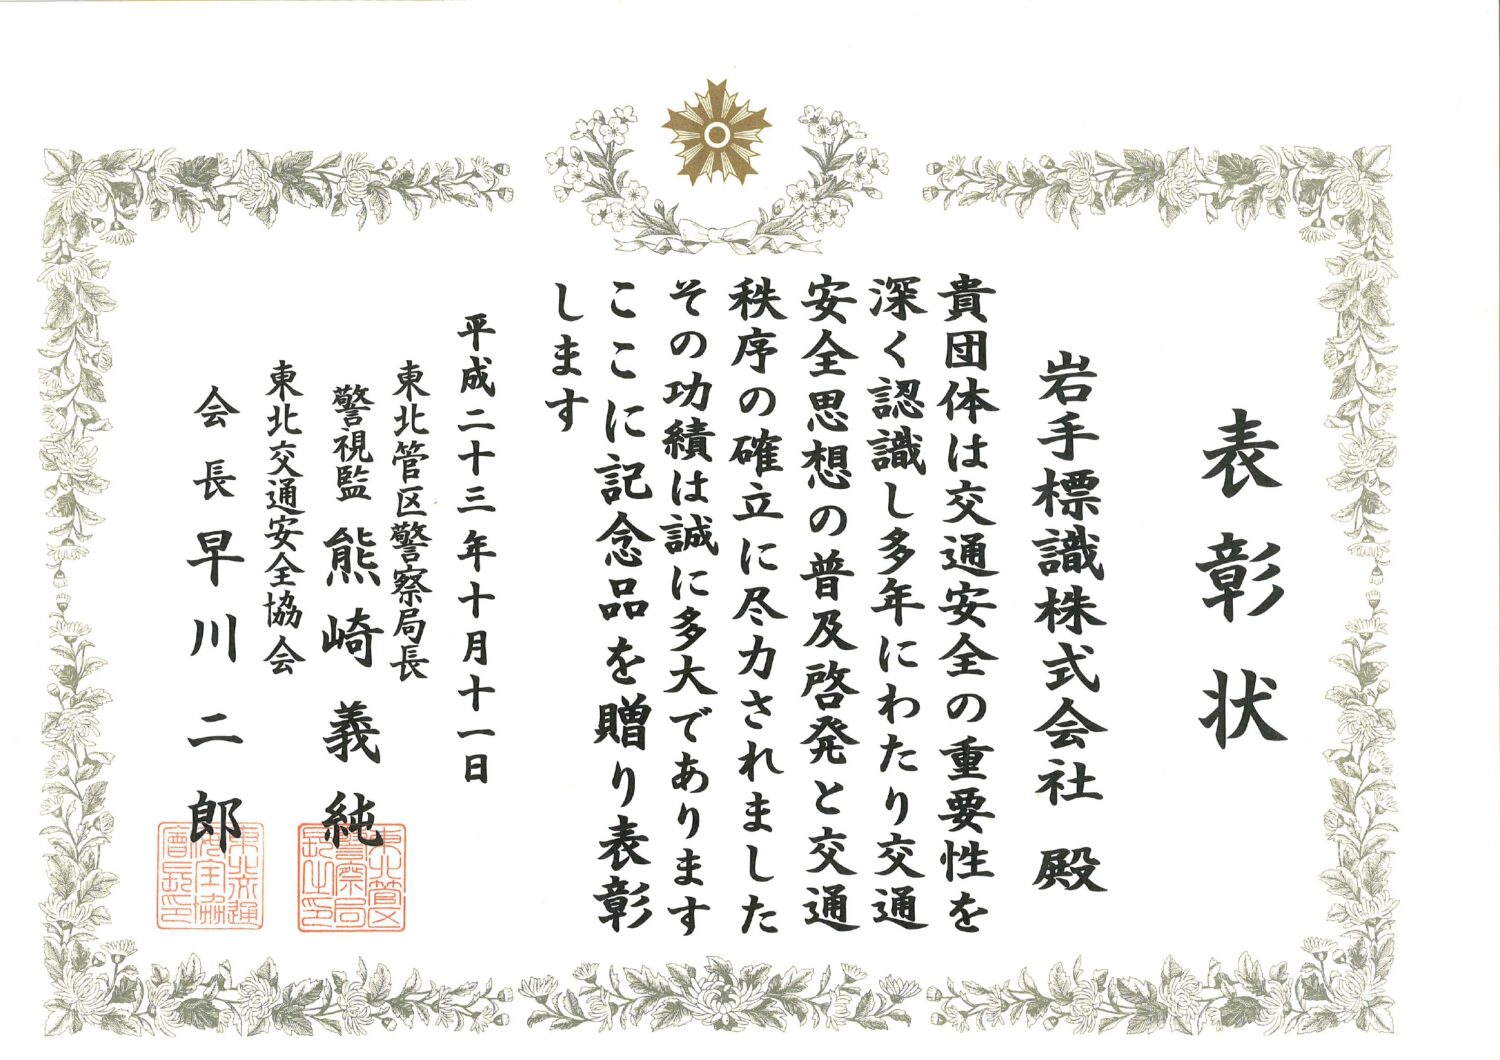 表彰状
岩手標識株式会社 殿
貴団体は交通安全の重要性を
深く認識し多年にわたり交通
安全思想の普及啓発と交通
秩序の確立に尽力されました
その功績は誠に多大であります
ここに記念品を贈り表彰
します
平成二十三年十月十一日
東北管区警察局長
警視監 熊崎義純
東北交通安全協会
会長 早川二郎
東北管区警察局長之印